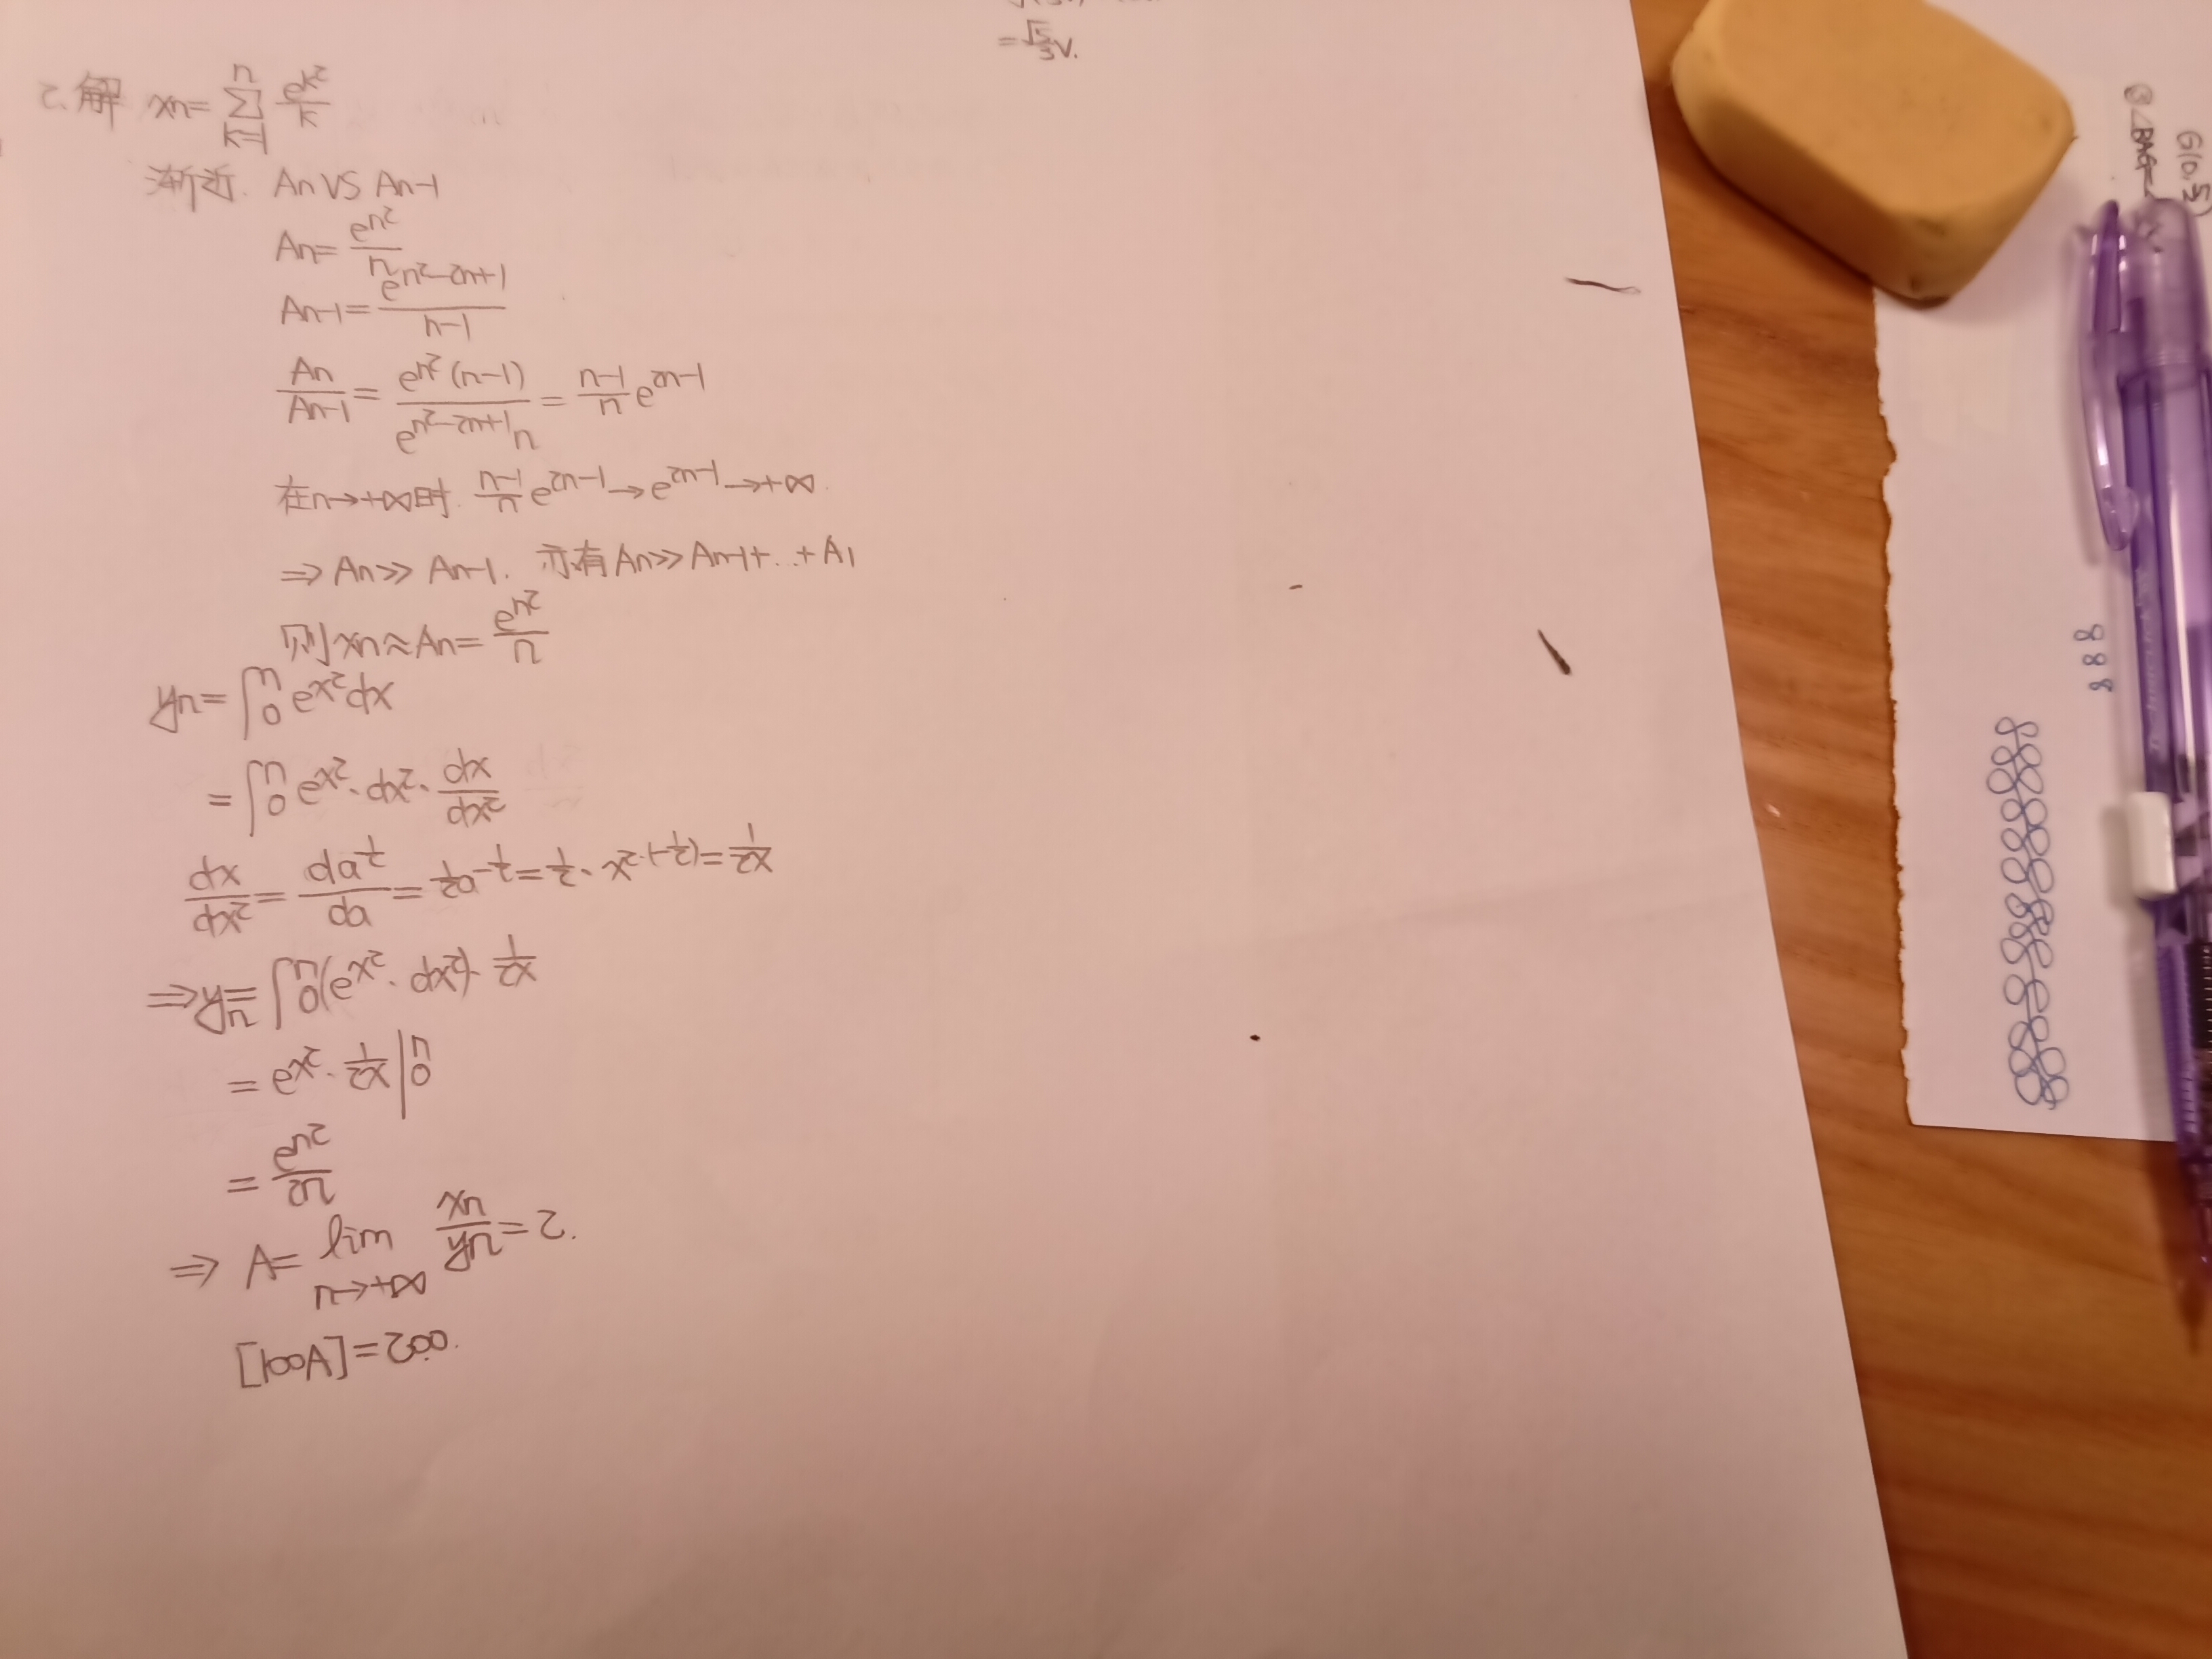 =√5/3 V.
2.解 xn= ∑_{k=1}^{n} e^{k²}/k
渐近. An VS An-1
An= e^{n²}/n
An-1= e^{n²-2n+1}/(n-1)
An/An-1 = e^{n²}(n-1)/(e^{n²-2n+1} n) = (n-1)/n e^{2n-1}
在n→+∞时. (n-1)/n e^{2n-1}→e^{2n-1}→+∞.
⇒ An>> An-1. 亦有An>>An-1+...+A1
则xn≈An= e^{n²}/n
yn= ∫_0^n e^{x²}dx
= ∫_0^n e^{x²}·dx²· dx/dx²
dx/dx² = da^{1/2}/da = 1/2 a^{-1/2} = 1/2 · x^{2·(-1/2)} = 1/2x
⇒yn= ∫_0^n (e^{x²}·dx²)· 1/2x
= e^{x²}· 1/2x |_0^n
= e^{n²}/2n
⇒ A= lim_{n→+∞} xn/yn =2.
[100A]=200.
G(0,
③∠BAG=
888